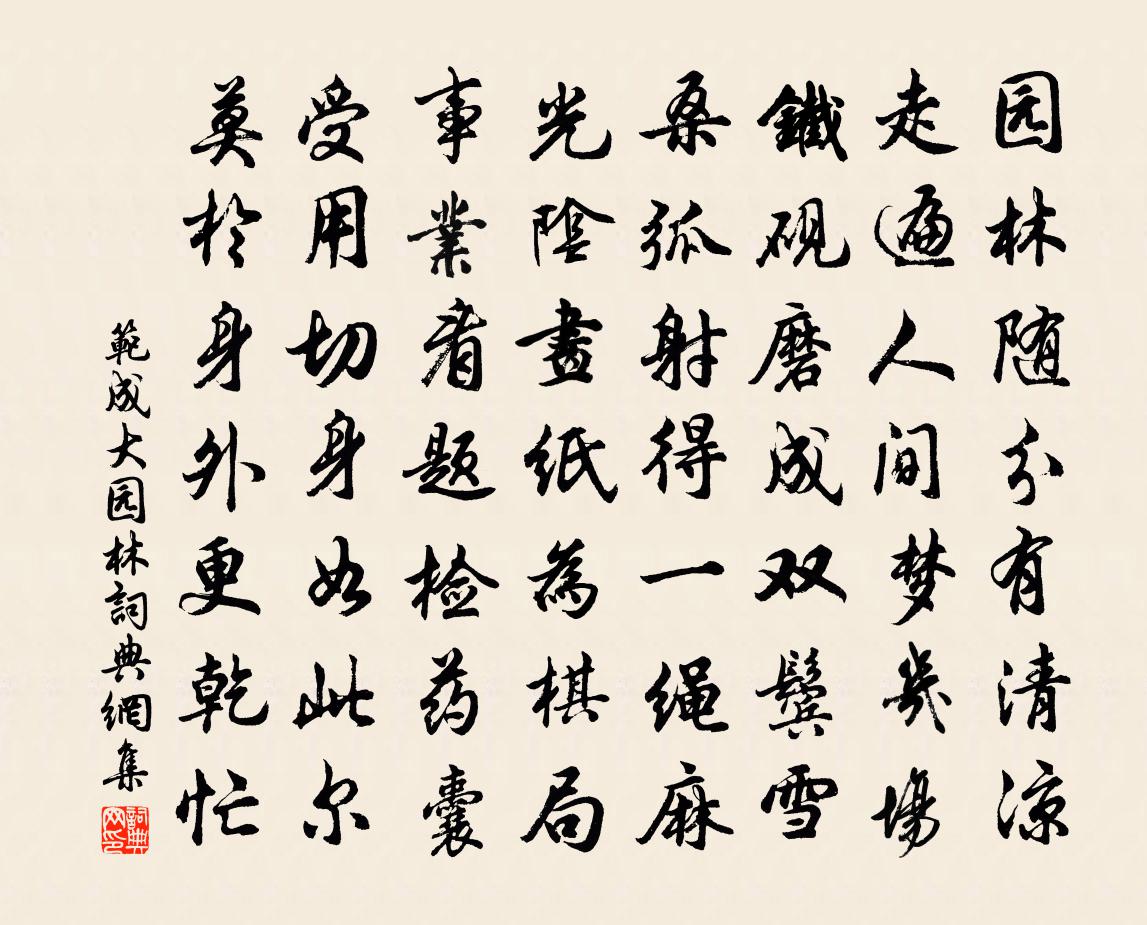 园林随分有清凉
走遍人间梦几场
鐵砚磨成双鬓雪
桑弧射得一绳麻
光陰畫纸為棋局
事業看题检药囊
受用切身如此尔
莫於身外更乾忙
範成大园林詞典網集
詞典网印